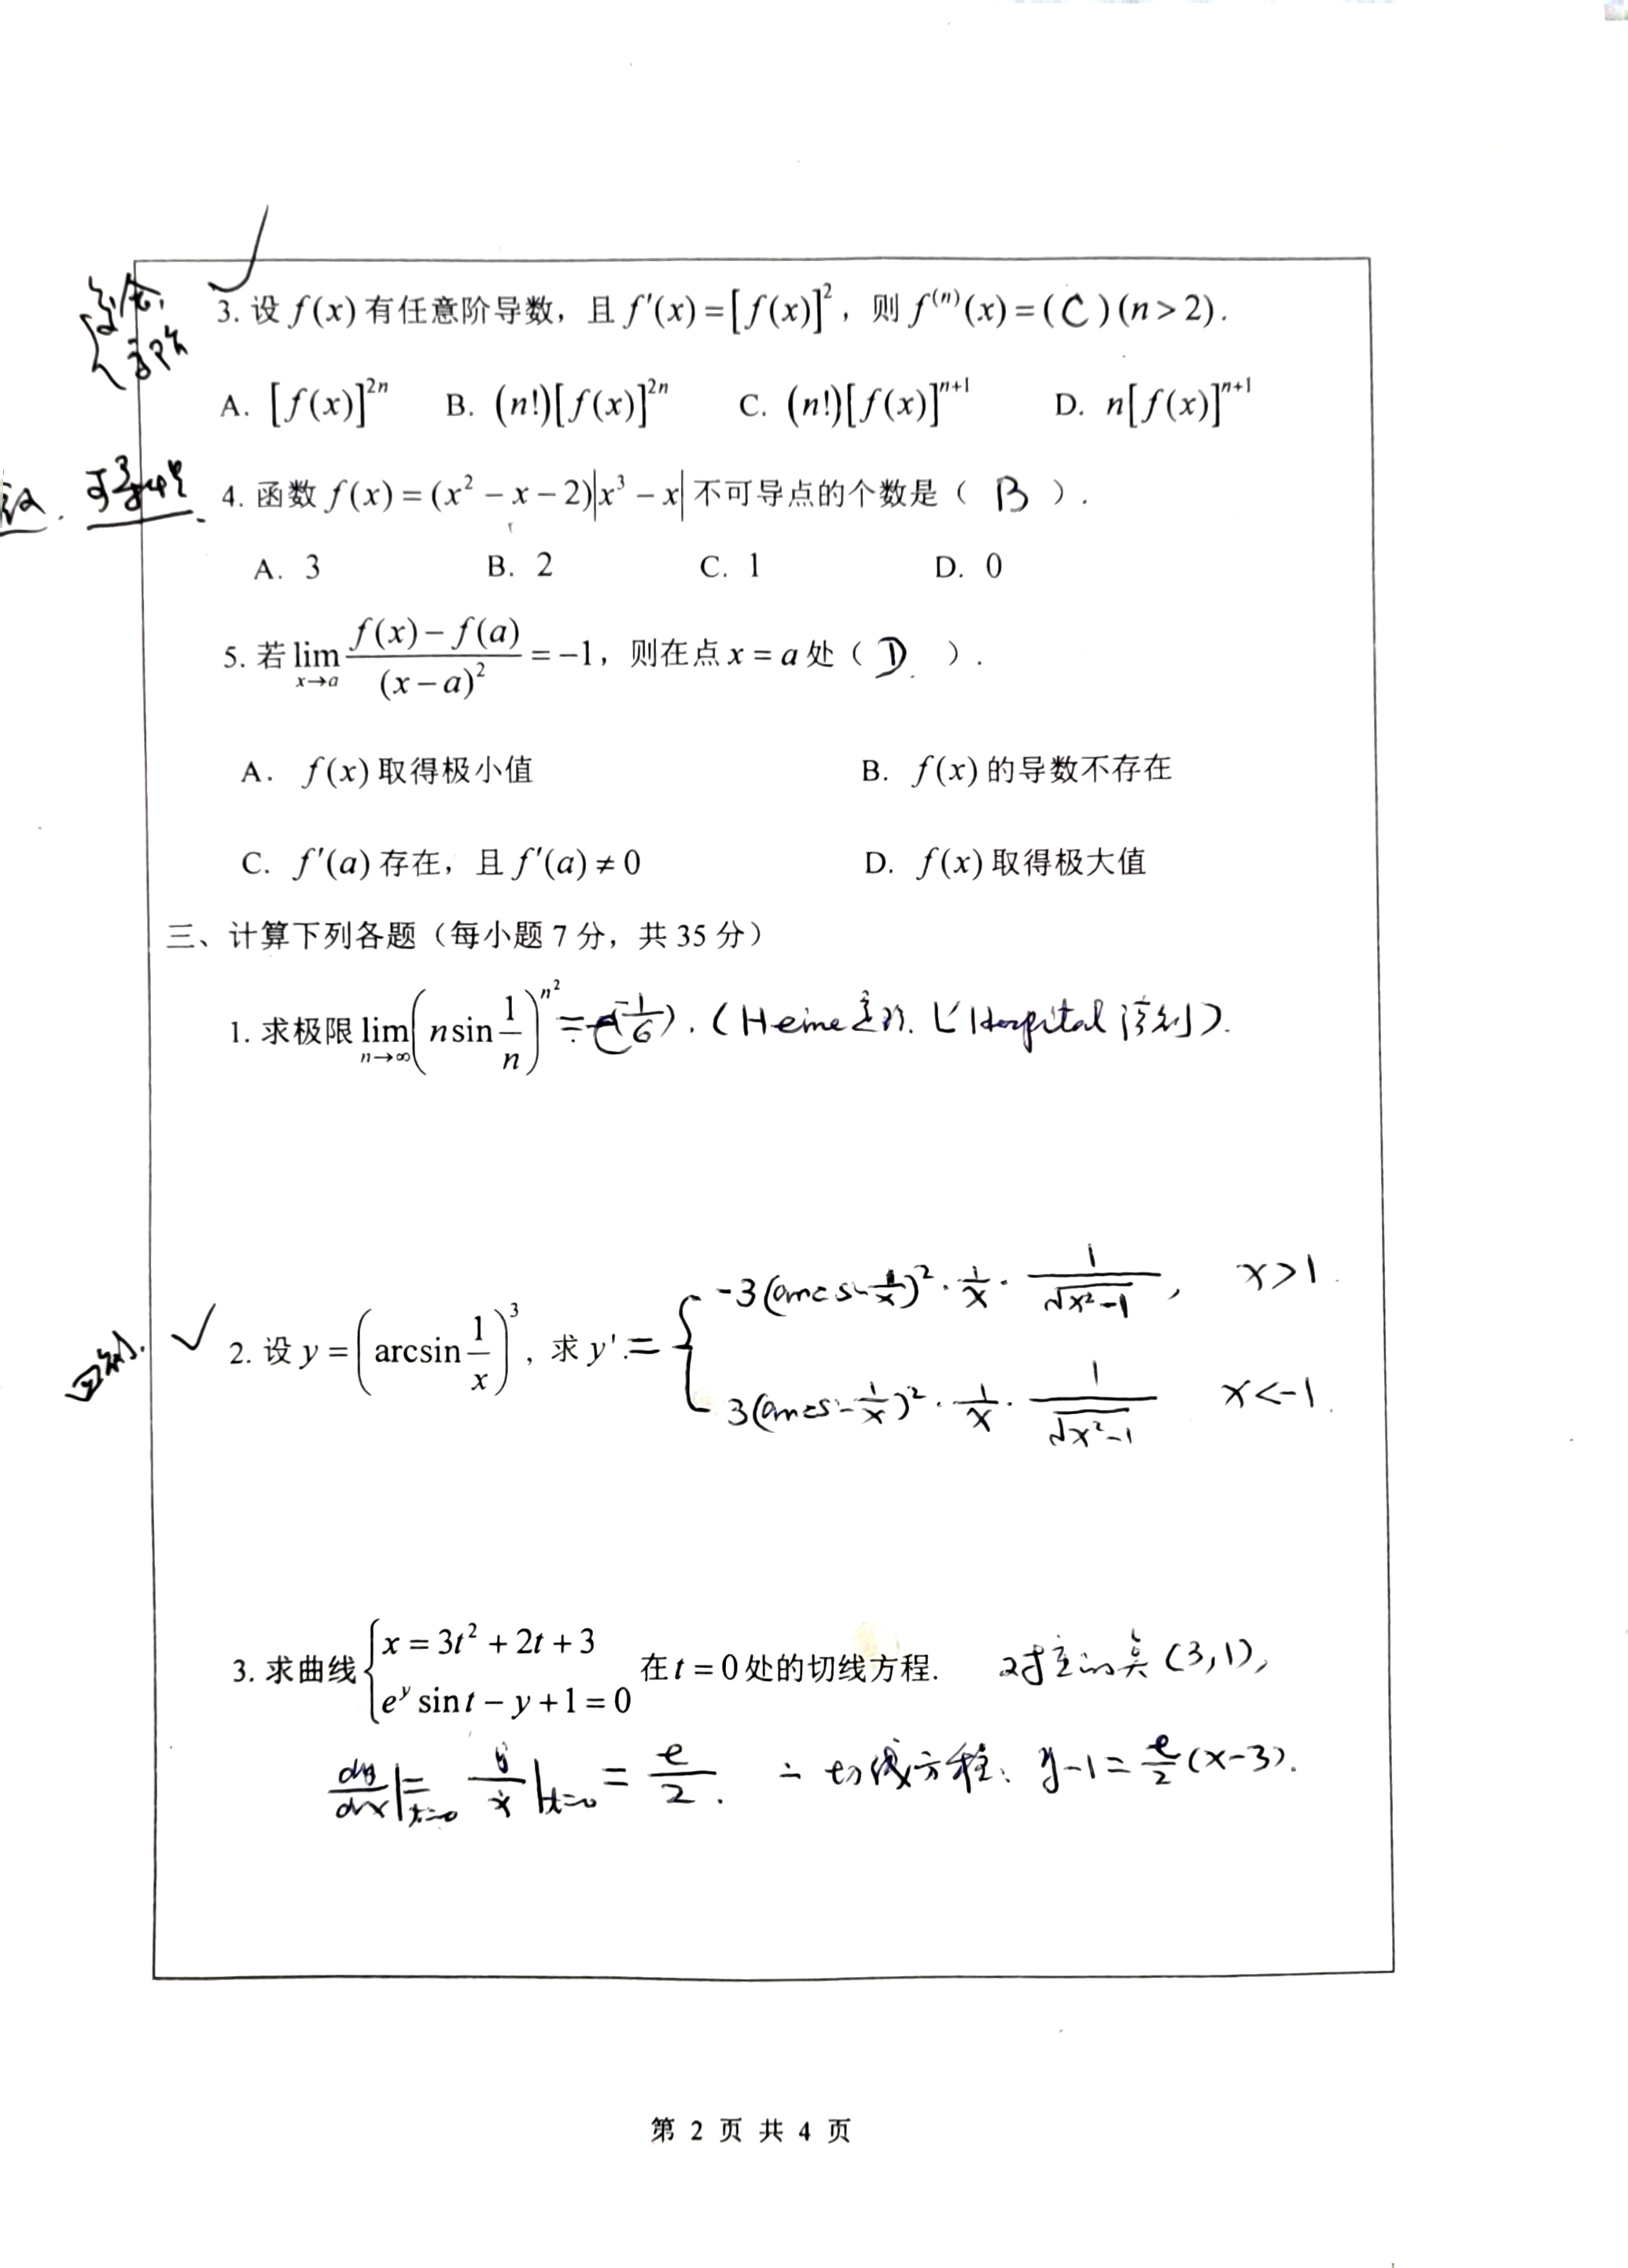 3. 设 f(x) 有任意阶导数，且 f′(x)=[f(x)]²，则 f⁽ⁿ⁾(x)=( C )(n>2).
高阶
A. [f(x)]²ⁿ B. (n!)[f(x)]²ⁿ C. (n!)[f(x)]ⁿ⁺¹ D. n[f(x)]ⁿ⁺¹
可导性. 4. 函数 f(x)=(x²−x−2)|x³−x| 不可导点的个数是（ B ）.
A. 3 B. 2 C. 1 D. 0
5. 若 lim_{x→a} (f(x)−f(a))/(x−a)² = −1，则在点 x=a 处（ D. ）.
A. f(x) 取得极小值 B. f(x) 的导数不存在
C. f′(a) 存在，且 f′(a)≠0 D. f(x) 取得极大值
三、计算下列各题（每小题 7 分，共 35 分）
1. 求极限 lim_{n→∞} (n sin 1/n)^{n²} = e^(−1/6). (Heine定理. L'Hospital 法则).
−3(arcsin 1/x)² · 1/x · 1/√(x²−1), x>1
2. 设 y=(arcsin 1/x)³, 求 y′. =
3(arcsin 1/x)² · 1/x · 1/√(x²−1) x<−1.
3. 求曲线 {x=3t²+2t+3 e^y sin t−y+1=0 在 t=0 处的切线方程. 对应的点 (3,1),
dy/dx|_{t=0} = ẏ/ẋ|_{t=0} = e/2. ∴ 切线方程: y−1=e/2(x−3).
第 2 页 共 4 页